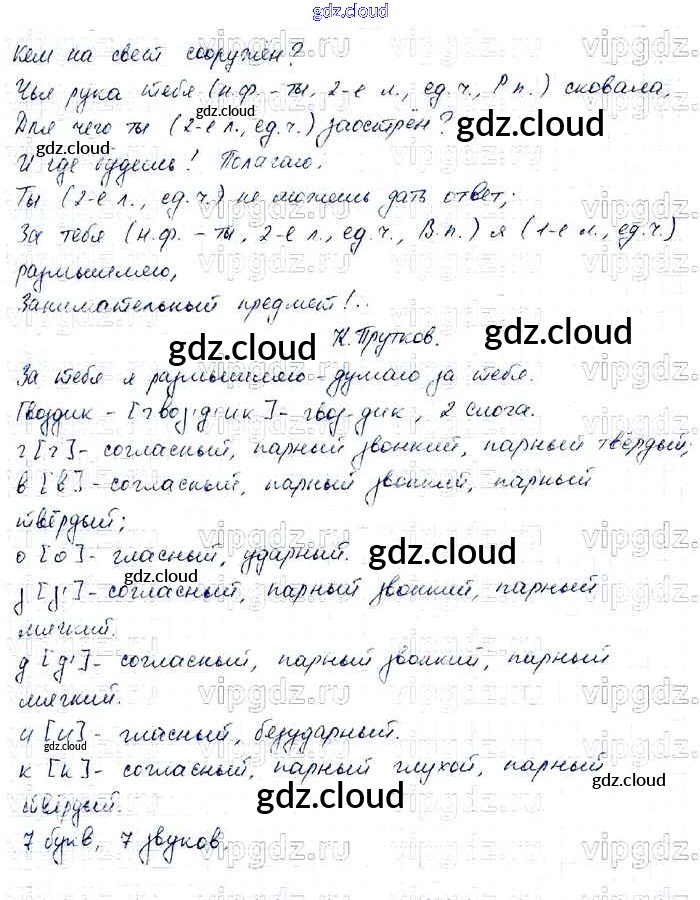 gdz.cloud
Кем на свет сооружён?
Чья рука тебя (н.ф. - ты, 2-е л., ед.ч., Р.п.) сковала,
Для чего ты (2-е л., ед.ч.) заострён?
И где будешь! Полагаю,
Ты (2-е л., ед.ч.) не можешь дать ответ;
За тебя (н.ф. - ты, 2-е л., ед.ч., В.п.) я (1-е л., ед.ч.)
размышляю,
Занимательный предмет!..
К. Прутков.
За тебя я размышляю - думаю за тебя.
Гвоздик - [гвоз'д'ик] - гвоз-дик, 2 слога.
г [г] - согласный, парный звонкий, парный твёрдый;
в [в] - согласный, парный звонкий, парный
твёрдый;
о [о] - гласный, ударный.
з [з'] - согласный, парный звонкий, парный
мягкий.
д [д'] - согласный, парный звонкий, парный
мягкий.
и [и] - гласный, безударный.
к [к] - согласный, парный глухой, парный
твёрдый.
7 букв, 7 звуков.